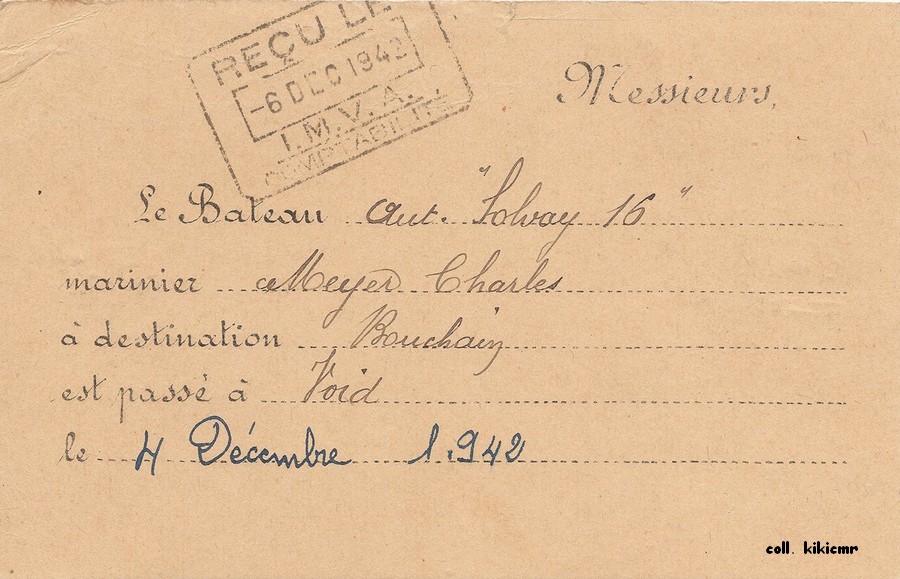 REÇU LE
-6 DEC 1942
I.M.V.A.
COMPTABILITÉ
Messieurs,
Le Bateau Aut. "Solvay 16"
marinier Meyer Charles
à destination Bouchain
est passé à Void
le 4 Décembre 1.942
coll. kikicmr